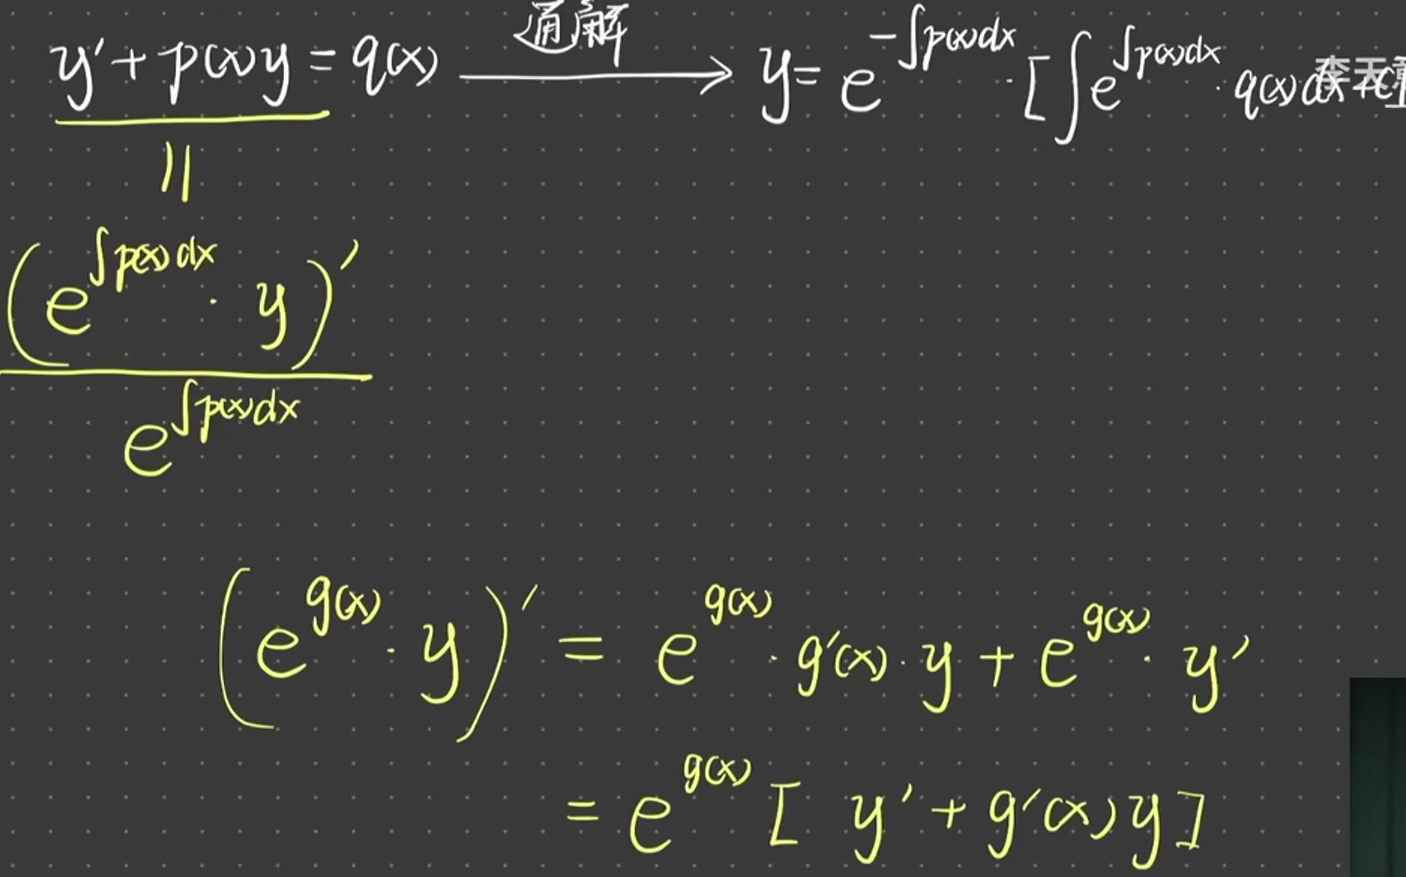 y′ + p(x)y = q(x) ⟶ 通解 y = e^{-∫p(x)dx} · [∫e^{∫p(x)dx} · q(x)dx + C]
李天
||
(e^{∫p(x)dx} · y)′
e^{∫p(x)dx}
(e^{g(x)} · y)′ = e^{g(x)} · g′(x) · y + e^{g(x)} · y′
= e^{g(x)} [ y′ + g′(x)y ]